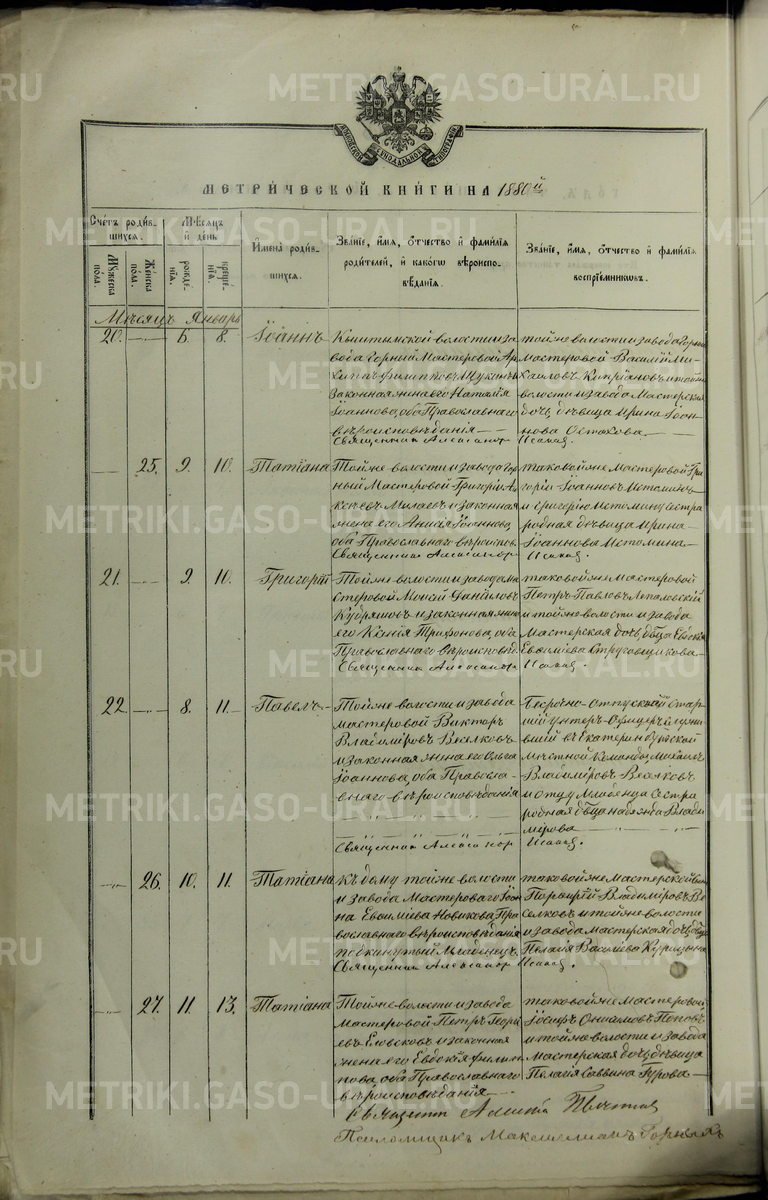 METRIKI.GASO-URAL.RU
МЕТРИ́ЧЕСКОЙ КНИ́ГИ НА 1880й
Сче́тъ роди́в-
шихся.
Мꙋжеска
пола.
Женска
пола.
Мѣсяцъ
и҆ день
рожде-
нїѧ.
креще-
нїѧ.
И҆мена̀ роди́в-
шихся.
Зва́нїе, и҆́мѧ, ѻ҆́тчество и҆ фами́лїѧ
роди́телей, и҆ како́гѡ вѣроиспо-
вѣ́данїѧ.
Зва́нїе, и҆́мѧ, ѻ҆́тчество и҆ фами́лїѧ
воспрїе́мникѡвъ.
Мѣсяцъ Январь
20. 6. 8. Іоаннъ
Кыштымской волости и за
вода Горный Мастеровой Ар
хиппъ Филипповъ Щукинъ и
законная жена его Наталія
Іоаннова, оба Православнаго
вѣроисповѣданія
Священникъ Александръ
той же волости и завода Горный
Мастеровой Василій Ми-
хаиловъ Кипріановъ и той же
волости и завода Мастерская
дочь, дѣвица Ирина Іоан-
нова Остахова.
Исаков.
25. 9. 10. Татіана
Той же волости и завода Гор
ный Мастеровой Григорій
и законная
жена его Анисія Іоаннова,
оба Православнаго вѣроиспов.
Священникъ Александръ
таковой же Мастеровой Гри
горій Іоанновъ Истоминъ
и Григорію Истомину сестра
родная дѣвица Ирина
Іоаннова Истомина
Исаков.
21. 9. 10. Григорій
Той же волости и завода Ма
стеровой Моисей Даніиловъ
Кудряшовъ и законная жена
его Ксенія Трифонова, оба
Православнаго вѣроисповѣд.
Священникъ Александръ
таковой же Мастеровой
Петръ Павловъ
и той же волости и завода
Мастерская дочь, дѣвица
Евфиміева Струговщикова
Исаков.
22. 8. 11. Павелъ
Той же волости и завода
мастеровой Викторъ
Владиміровъ Веселковъ
и законная жена его Ольга
Іоаннова, оба Правосла-
внаго вѣроисповѣданія
Священникъ Александръ
Безсрочно-Отпускной Стар
шій Унтеръ-Офицеръ служи
вшій въ Екатеринбургской
мѣстной Командѣ, Михаилъ
Владиміровъ Веселковъ
и отцу Младенца Сестра
родная дѣвица Надежда Влади
мірова
Исаков.
26. 10. 11. Татіана
Къ дому той же волости
и завода Мастероваго Іоан
на Евфиміева Новикова, Пра
вославнаго вѣроисповѣданія
подкинутый Младенецъ.
Священникъ Александръ
таковой же Мастерской сынъ
Порфирій Владиміровъ Ве
селковъ и той же волости
и завода мастерская дочь, дѣвица
Пелагія Василіева
Исаков.
27. 11. 13. Татіана
Той же волости и завода
Мастеровой Петръ Георгі
евъ Еловсковъ и законная
жена его Евдокія Филип
пова, оба Православнаго
вѣроисповѣданія
таковой же Мастеровой
Іосифъ Поповъ
и той же волости и завода
Мастерская дочь, дѣвица
Пелагія Саввина Нурова
Псаломщикъ Максимиліанъ